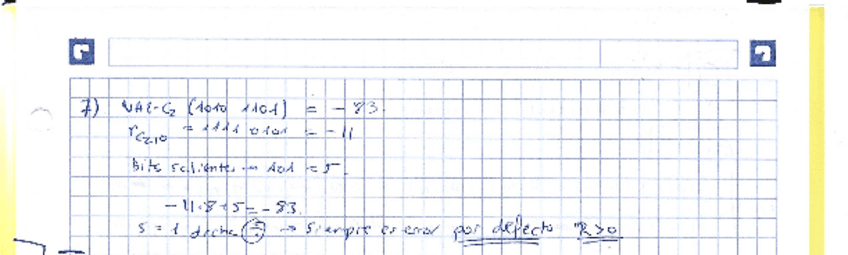 7) VAL-C2 (1010 1101) = -83.
rC2,10 = 1111 0101 = -11
bits salientes → 101 = 5.
-11·8+5=-83.
S = 1 → siempre es error por defecto R>0